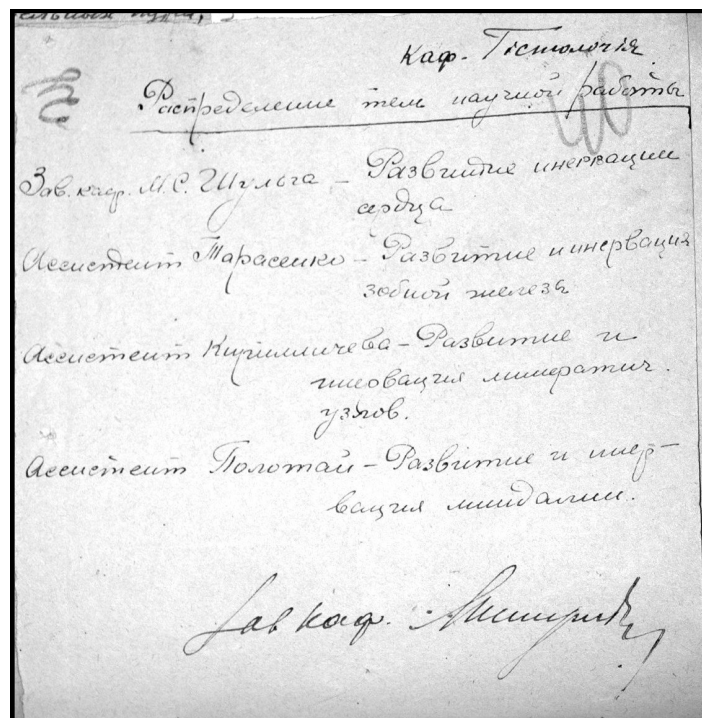 каф. Гістологія
Распределение тем научной работы
Зав. каф. М.С. Шульга – Развитие инервации
сердца
Ассистент Тарасенко – Развитие и инервация
зобной железы
Ассистент Кирилличева – Развитие и
инервация лимфатич.
узлов.
Ассистент Полотай – Развитие и инер-
вация миндалин.
Зав каф.